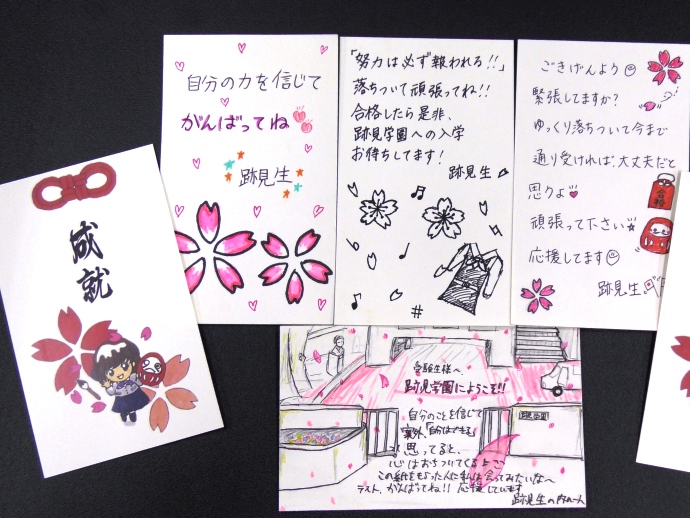 成就
自分の力を信じて
がんばってね
跡見生
「努力は必ず報われる!!」
落ちついて頑張ってね!!
合格したら是非、
跡見学園への入学
お待ちしてます!
跡見生
ごきげんよう
緊張してますか?
ゆっくり落ちついて今まで
通り受ければ、大丈夫だと
思うよ
頑張って下さい
応援します
跡見生
合格
受験生様へ
跡見学園にようこそ!!
自分のことを信じて
案外、「自分はできる」
と思ってると、
心はおちついてくるよ
この紙をもらった人に私は会ってみたいな〜
テスト、がんばってね!! 応援しています
跡見生の内の一人